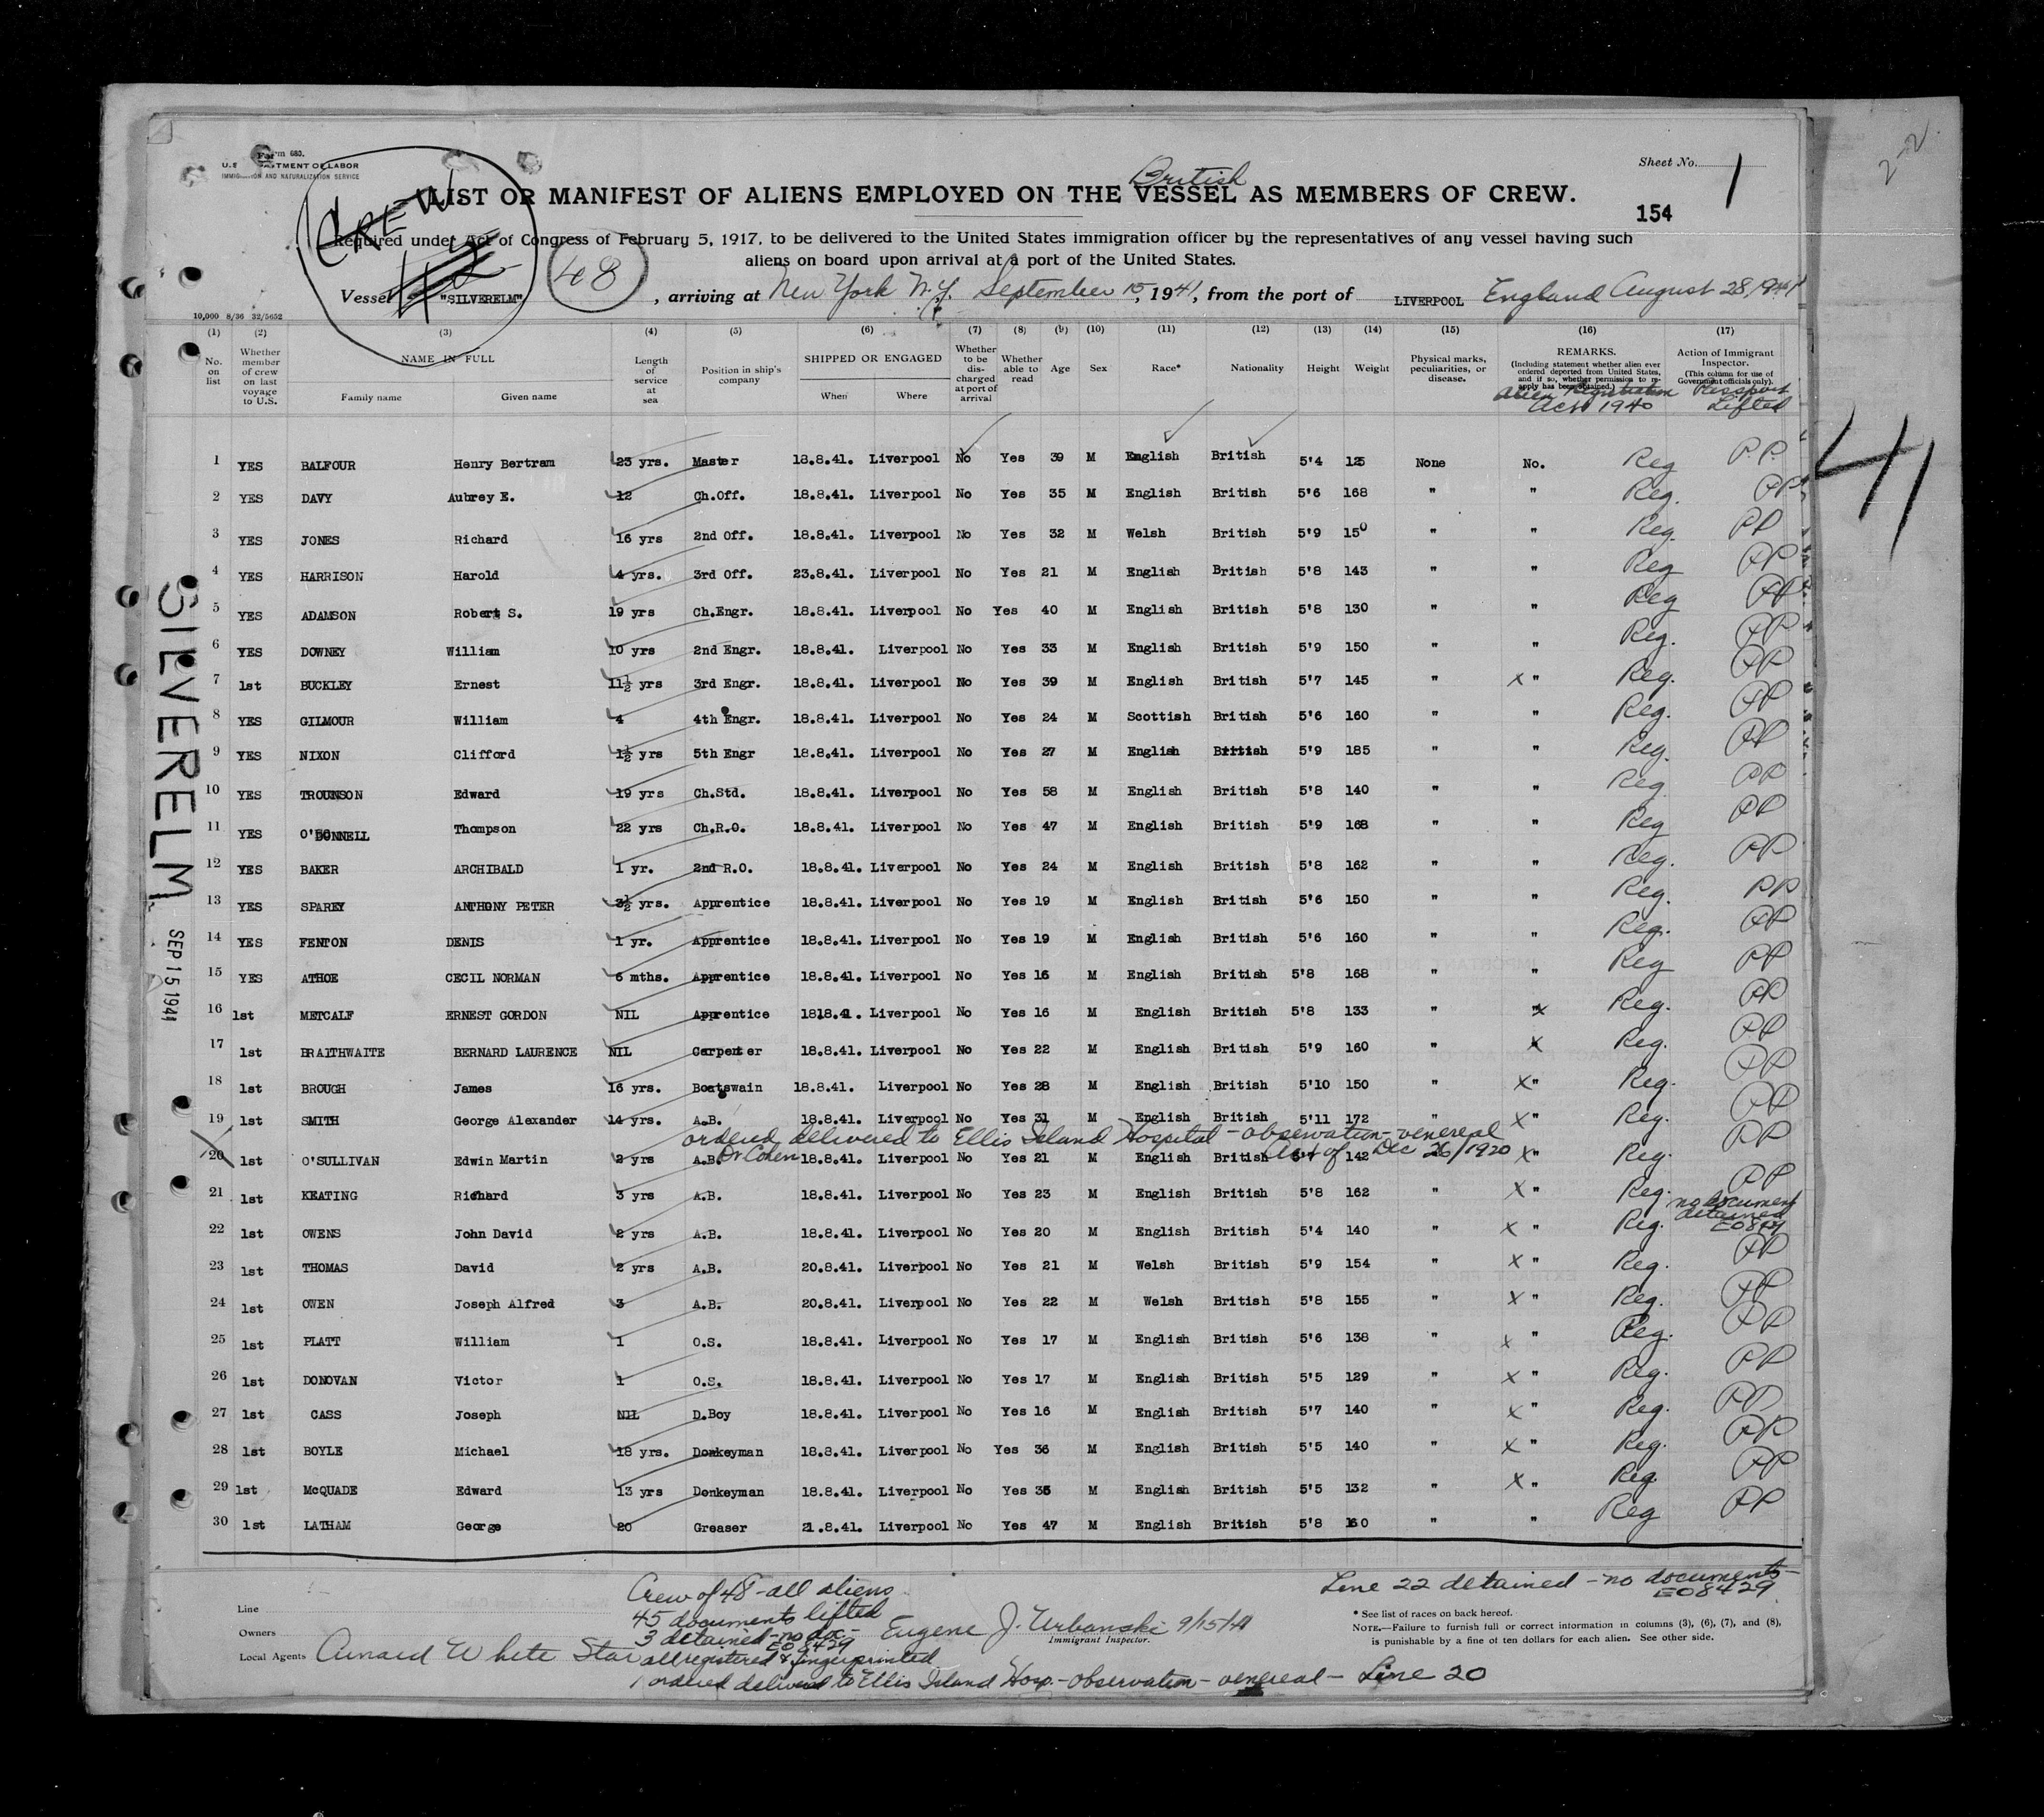 Form 680.
U.S. DEPARTMENT OF LABOR
IMMIGRATION AND NATURALIZATION SERVICE
Sheet No. 1
British
LIST OR MANIFEST OF ALIENS EMPLOYED ON THE VESSEL AS MEMBERS OF CREW.
154
CREW
48
Required under Act of Congress of February 5, 1917, to be delivered to the United States immigration officer by the representatives of any vessel having such
aliens on board upon arrival at a port of the United States.
Vessel "SILVERELM", arriving at New York N.Y. September 15, 1941, from the port of LIVERPOOL England August 28, 1941
10,000 8/36 32/5652
(1) (2) (3) (4) (5) (6) (7) (8) (9) (10) (11) (12) (13) (14) (15) (16) (17)
No. on list
Whether member of crew on last voyage to U.S.
NAME IN FULL
Family name
Given name
Length of service at sea
Position in ship's company
SHIPPED OR ENGAGED
When
Where
Whether to be discharged at port of arrival
Whether able to read
Age
Sex
Race*
Nationality
Height
Weight
Physical marks, peculiarities, or disease.
REMARKS.
(Including statement whether alien ever ordered deported from United States, and if so, whether permission to reapply has been obtained.)
Alien Registration
Act 1940
Action of Immigrant Inspector.
(This column for use of Government officials only).
Passport
Lifted
1 YES BALFOUR Henry Bertram 23 yrs. Master 18.8.41. Liverpool No Yes 39 M English British 5'4 125 None No. Reg P.P.
2 YES DAVY Aubrey E. 12 Ch.Off. 18.8.41. Liverpool No Yes 35 M English British 5'6 168 " " Reg. PP
3 YES JONES Richard 16 yrs 2nd Off. 18.8.41. Liverpool No Yes 32 M Welsh British 5'9 150 " " Reg. PP
4 YES HARRISON Harold 4 yrs. 3rd Off. 23.8.41. Liverpool No Yes 21 M English British 5'8 143 " " Reg PP
5 YES ADAMSON Robert S. 19 yrs Ch.Engr. 18.8.41. Liverpool No Yes 40 M English British 5'8 130 " " Reg PP
6 YES DOWNEY William 10 yrs 2nd Engr. 18.8.41. Liverpool No Yes 33 M English British 5'9 150 " " Reg. PP
7 1st BUCKLEY Ernest 11½ yrs 3rd Engr. 18.8.41. Liverpool No Yes 39 M English British 5'7 145 " X " Reg. PP
8 YES GILMOUR William 4 4th Engr. 18.8.41. Liverpool No Yes 24 M Scottish British 5'6 160 " " Reg. PP
9 YES NIXON Clifford 1½ yrs 5th Engr 18.8.41. Liverpool No Yes 27 M English British 5'9 185 " " Reg. PP
10 YES TROUNSON Edward 19 yrs Ch.Std. 18.8.41. Liverpool No Yes 58 M English British 5'8 140 " " Reg PP
11 YES O'DONNELL Thompson 22 yrs Ch.R.O. 18.8.41. Liverpool No Yes 47 M English British 5'9 168 " " Reg PP
12 YES BAKER ARCHIBALD 1 yr. 2nd R.O. 18.8.41. Liverpool No Yes 24 M English British 5'8 162 " " Reg. PP
13 YES SPAREY ANTHONY PETER 3½ yrs. Apprentice 18.8.41. Liverpool No Yes 19 M English British 5'6 150 " " Reg. PP
14 YES FENTON DENIS 1 yr. Apprentice 18.8.41. Liverpool No Yes 19 M English British 5'6 160 " " Reg. PP
15 YES ATHOE CECIL NORMAN 6 mths. Apprentice 18.8.41. Liverpool No Yes 16 M English British 5'8 168 " " Reg PP
16 1st METCALF ERNEST GORDON NIL Apprentice 18.8.41. Liverpool No Yes 16 M English British 5'8 133 " X Reg. PP
17 1st BRAITHWAITE BERNARD LAURENCE NIL Carpenter 18.8.41. Liverpool No Yes 22 M English British 5'9 160 " X Reg. PP
18 1st BROUGH James 16 yrs. Boatswain 18.8.41. Liverpool No Yes 28 M English British 5'10 150 " X " Reg. PP
19 1st SMITH George Alexander 14 yrs. A.B. 18.8.41. Liverpool No Yes 31 M English British 5'11 172 " X " Reg. PP
ordered delivered to Ellis Island Hospital - observation - venereal
Dr Cohen Act of Dec 26/1920
20 1st O'SULLIVAN Edwin Martin 2 yrs A.B. 18.8.41. Liverpool No Yes 21 M English British 142 X " Reg. PP
21 1st KEATING Richard 3 yrs A.B. 18.8.41. Liverpool No Yes 23 M English British 5'8 162 " X " Reg. PP
22 1st OWENS John David 2 yrs A.B. 18.8.41. Liverpool No Yes 20 M English British 5'4 140 " X " Reg. no document detained EO 8429
23 1st THOMAS David 2 yrs A.B. 20.8.41. Liverpool No Yes 21 M Welsh British 5'9 154 " X " Reg. PP
24 1st OWEN Joseph Alfred 3 A.B. 20.8.41. Liverpool No Yes 22 M Welsh British 5'8 155 " X " Reg. PP
25 1st PLATT William 1 O.S. 18.8.41. Liverpool No Yes 17 M English British 5'6 138 " X " Reg. PP
26 1st DONOVAN Victor 1 O.S. 18.8.41. Liverpool No Yes 17 M English British 5'5 129 " X " Reg. PP
27 1st CASS Joseph NIL D.Boy 18.8.41. Liverpool No Yes 16 M English British 5'7 140 " X " Reg. PP
28 1st BOYLE Michael 18 yrs. Donkeyman 18.8.41. Liverpool No Yes 36 M English British 5'5 140 " X " Reg. PP
29 1st McQUADE Edward 13 yrs Donkeyman 18.8.41. Liverpool No Yes 35 M English British 5'5 132 " X " Reg. PP
30 1st LATHAM George 20 Greaser 21.8.41. Liverpool No Yes 47 M English British 5'8 160 " " Reg PP
SILVERELM
SEP 15 1941
41
Crew of 48 - all aliens
45 documents lifted
3 detained - no doc. -
EO 8429
all registered & fingerprinted
1 ordered delivered to Ellis Island Hosp. - observation - venereal - Line 20
Line
Owners
Local Agents Cunard White Star
Eugene J. Urbanski 9/15/41
Immigrant Inspector.
Line 22 detained - no documents -
EO 8429
* See list of races on back hereof.
NOTE.—Failure to furnish full or correct information in columns (3), (6), (7), and (8),
is punishable by a fine of ten dollars for each alien. See other side.